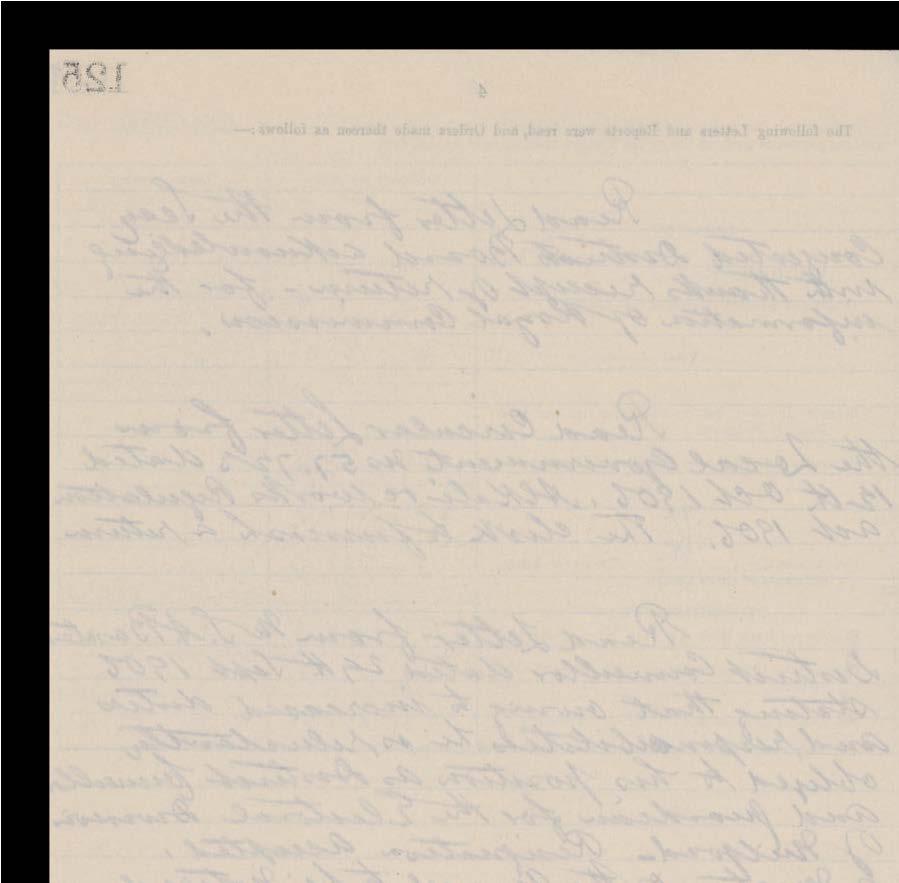 125
4
The following Letters and Reports were read, and Orders made thereon as follows:—
Read Letter from the Secy
Congested Districts Board acknowledging
with thanks receipt of return - for the
information of Royal Commission.
Read Circular Letter from
the Local Government No 57,
12th Oct 1906, Alkali &c Works Regulation
Act 1906. The Clerk to furnish a return
Read Letter from Mr
District Councillor dated 29th Sept 1906
stating that owing to increased duties
and responsibilities he is reluctantly
obliged to his position as District Councillor
and Guardian for the Electoral Division
of Resignation accepted,